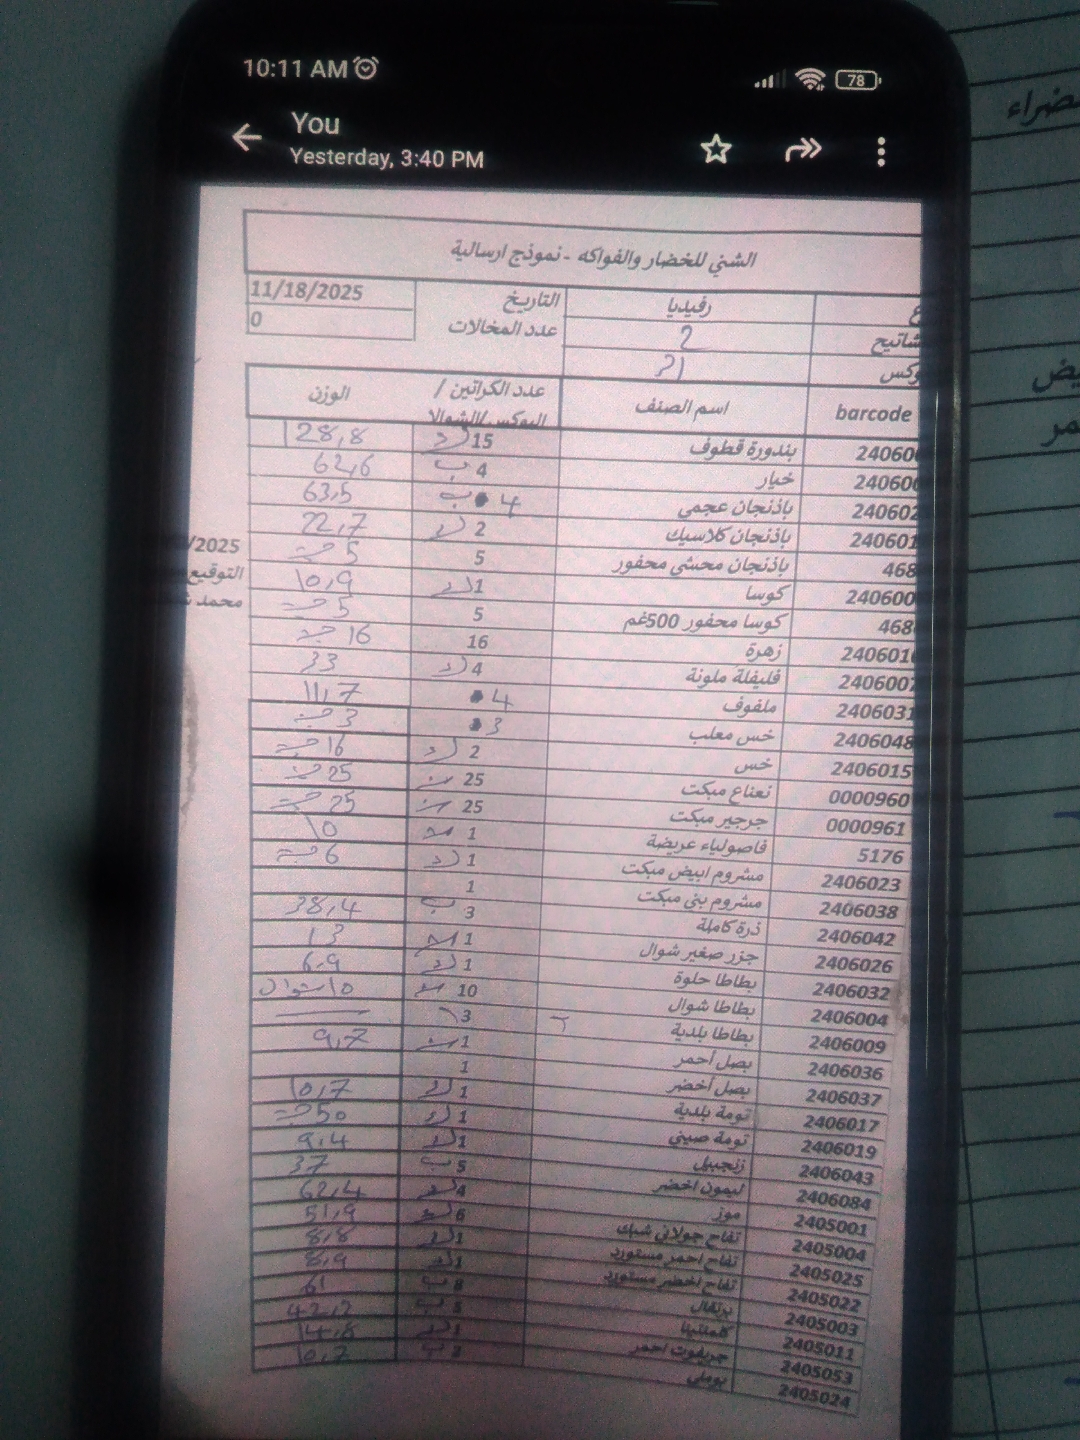 10:11 AM
78
You
Yesterday, 3:40 PM
الشني للخضار والفواكه - نموذج ارسالية
رفيديا التاريخ 11/18/2025
2 عدد المخالات 0
21
barcode اسم الصنف عدد الكراتين / البوكس/الشوالا الوزن
24060 بندورة قطوف 15 128,8
24060 خيار 4 ب 62,6
240602 باذنجان عجمي 4 ب 63,5
240601 باذنجان كلاسيك 2 22,7
468 باذنجان محشي محفور 5 5 حبة
240600 كوسا 1 10,9
468 كوسا محفور 500غم 5 5 حبة
240601 زهرة 16 16 حبة
2406007 فليفلة ملونة 4 33
2406031 ملفوف 4 11,7
2406048 خس معلب 3 3 حبة
2406015 خس 2 16 حبة
0000960 نعناع مبكت 25 25 حبة
0000961 جرجير مبكت 25 25 حبة
5176 فاصولياء عريضة 1 10
2406023 مشروم ابيض مبكت 1 6 حبة
2406038 مشروم بني مبكت 1
2406042 ذرة كاملة 3 ب 38,4
2406026 جزر صغير شوال 1 13
2406032 بطاطا حلوة 1 6,9
2406004 بطاطا شوال 10 10 شوال
2406009 بطاطا بلدية 3
2406036 بصل احمر 1 9,7
2406037 بصل أخضر 1
2406017 تومة بلدية 1 10,7
2406019 تومة صيني 1 50 حبة
2406043 زنجبيل 1 9,4
2406084 ليمون اخضر 5 ب 37
2405001 موز 4 62,4
2405004 تفاح جولاني شبك 6 51,9
2405025 تفاح احمر مستورد 1 8,8
2405022 تفاح اخضر مستورد 1 8,9
2405003 برتقال 8 ب 61
2405011 كلمنتينا 5 ب 42,2
2405053 جريفوت احمر 1 14,8
2405024 بوملي 3 ب 10,7
/2025
التوقيع
محمد